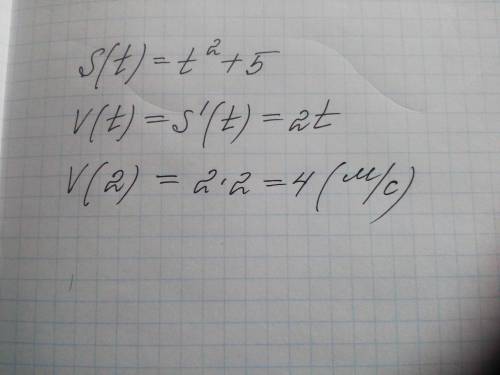 S(t) = t² + 5
V(t) = S'(t) = 2t
V(2) = 2·2 = 4 (м/с)